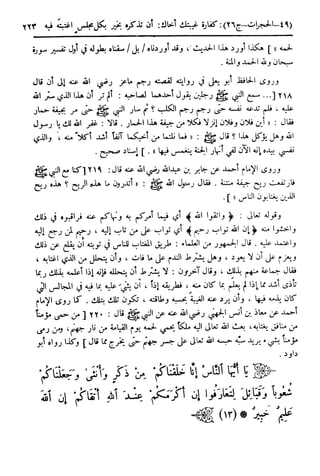 (٤٩ - الحجرات - ج٢٦) : كفارة غيبتك أخاك: أن تذكره بخير بكل مجلس اغتبته فيه ٢٢٣
لحمه ﴾ هكذا أورد هذا الحديث، وقد أوردناه / بل / سقناه بطوله في أول تفسير سورة
سبحان ولله الحمد والمنة.
وروى الحافظ أبو يعلى في روايته لقصة رجم ماعز رضي الله عنه إلى أن قال
٢١٨ [... سمع النبي ﷺ رجلين يقول أحدهما لصاحبه: ألم تر أن هذا الذي ستر الله
عليه، فلم تدعه نفسه حتى رجم رجم الكلب؟ ثم سار النبي ﷺ حتى مر بجيفة حمار
فقال: « أين فلان وفلان إنزلا فكلا من جيفة هذا الحمار. قالا: غفر الله لك يا رسول
الله وهل يؤكل هذا؟ قال ﷺ: « فما نلتما من أخيكما آنفاً أشد أكلاً منه، والذي
نفسي بيده إنه الآن لفي أنهار الجنة ينغمس فيها » .] إسناد صحيح.
وروى الإمام أحمد عن جابر بن عبدالله رضي الله عنه قال: ٢١٩ [كنا مع النبي ﷺ
فارتفعت ريح جيفة منتنة. فقال رسول الله ﷺ: « أتدرون ما هذه الريح ؟ هذه ريح
الذين يغتابون الناس » ].
وقوله تعالى: ﴿ واتقوا الله ﴾ أي فيما أمركم به ونهاكم عنه فراقبوه في ذلك
واخشوا منه ﴿ إن الله تواب رحيم ﴾ أي تواب على من تاب إليه، رحيم لمن رجع إليه
واعتمد عليه. قال الجمهور من العلماء: طريق المغتاب للناس في توبته أن يقلع عن ذلك
ويعزم على أن لا يعود، وهل يشترط الندم على ما فات، وأن يتحلل من الذي اغتابه،
فقال جماعة منهم بذلك، وقال آخرون: لا يشترط أن يتحلله فإنه إذا أعلمه بذلك ربما
تأذى أشد مما إذا لم يعلم بما كان منه، فطريقه إذاً، أن يثني عليه بما فيه في المجالس التي
كان يذمه فيها، وأن يرد عنه الغيبة بحسبه وطاقته، تكون تلك بتلك. كما روى الإمام
أحمد عن معاذ بن أنس الجهني رضي الله عنه عن النبي ﷺ قال: ٢٢٠ [ من حمى مؤمناً
من منافق يغتابه، بعث الله تعالى إليه ملكاً يحمي لحمه يوم القيامة من نار جهنم، ومن رمى
مؤمناً بشيء يريد سبه حبسه الله تعالى على جسر جهنم حتى يخرج مما قال ] وكذا رواه أبو
داود.
﴿ يَا أَيُّهَا النَّاسُ إِنَّا خَلَقْنَاكُمْ مِنْ ذَكَرٍ وَأُنْثَى وَجَعَلْنَاكُمْ
شُعُوباً وَقَبَائِلَ لِتَعَارَفُوا إِنَّ أَكْرَمَكُمْ عِنْدَ اللَّهِ أَتْقَاكُمْ إِنَّ اللَّهَ
عَلِيمٌ خَبِيرٌ * (١٣) ﴾